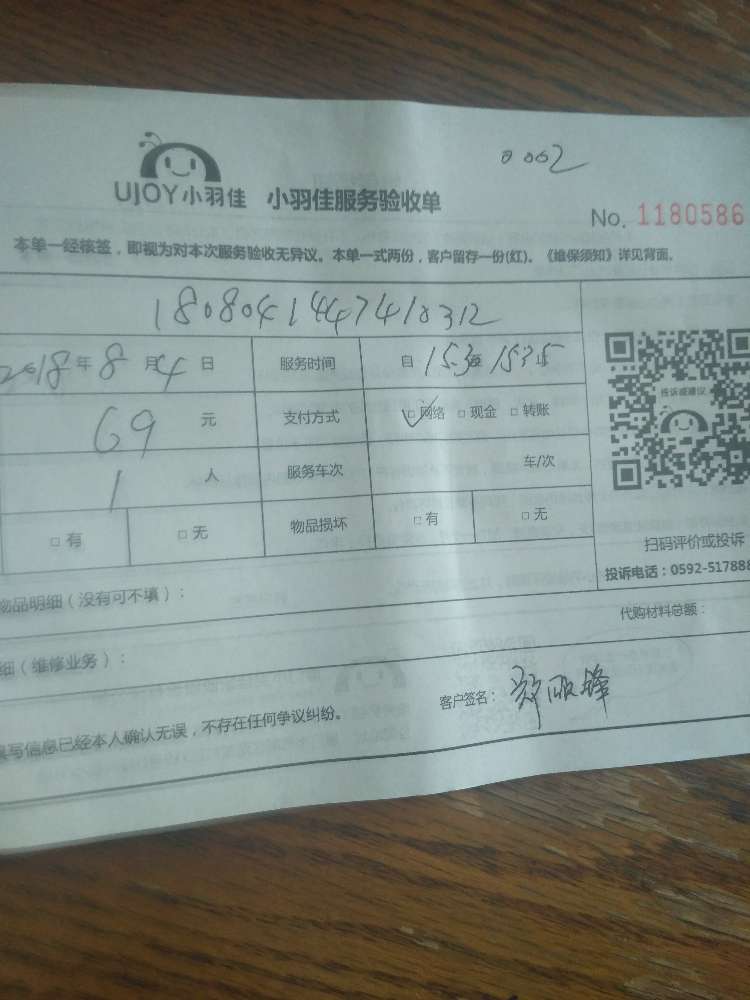 0002
UJOY小羽佳 小羽佳服务验收单
No. 1180586
本单一经核签，即视为对本次服务验收无异议。本单一式两份，客户留存一份(红)。《维保须知》详见背面。
180804144741
2018年8月4日 服务时间 自 至 1535 止
投诉或建议
69 元 支付方式 ☑网络 □现金 □转账
1 人 服务车次 车/次
□有 □无 物品损坏 □有 □无
扫码评价或投诉
投诉电话：0592-517888
物品明细（没有可不填）：
代购材料总额：
细（维修业务）：
客户签名：郑
填写信息已经本人确认无误，不存在任何争议纠纷。